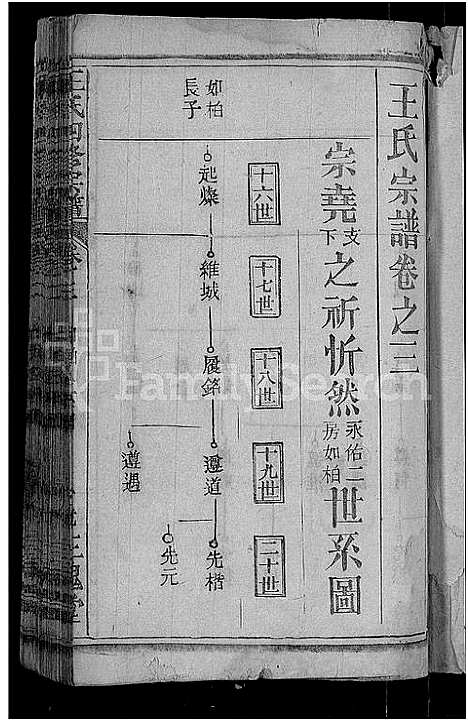 王氏宗譜卷之三
宗堯支下之祈忻然永佑二房如柏世系圖
十六世
十七世
十八世
十九世
二十世
如柏長子
起燦
維城
履銘
遵道
先楷
先元
遵遇
FamilySearch